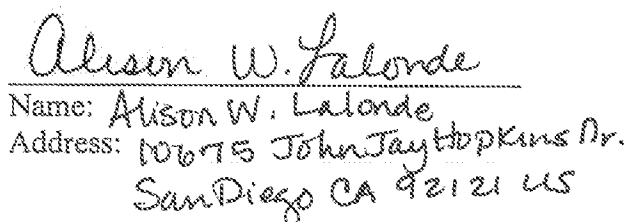 Alison W. Lalonde
Name: Alison W. Lalonde
Address: 10675 John Jay Hopkins Dr.
San Diego CA 92121 US